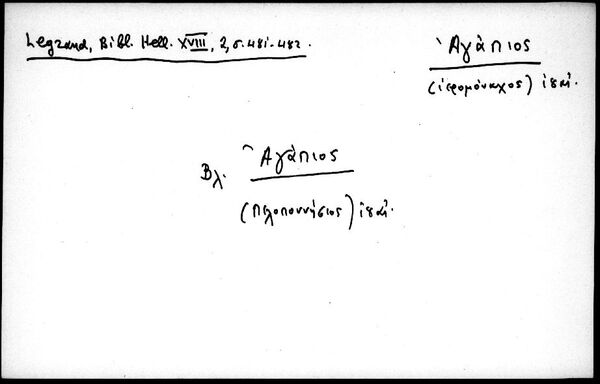 Legrand, Bibl. Hell. XVIII, 2, σ. 481-482.
Ἀγάπιος
(ἱερομόναχος) ιηʹ αἰ.
Βλ. Ἀγάπιος
(Πελοποννήσιος) ιηʹ αἰ.